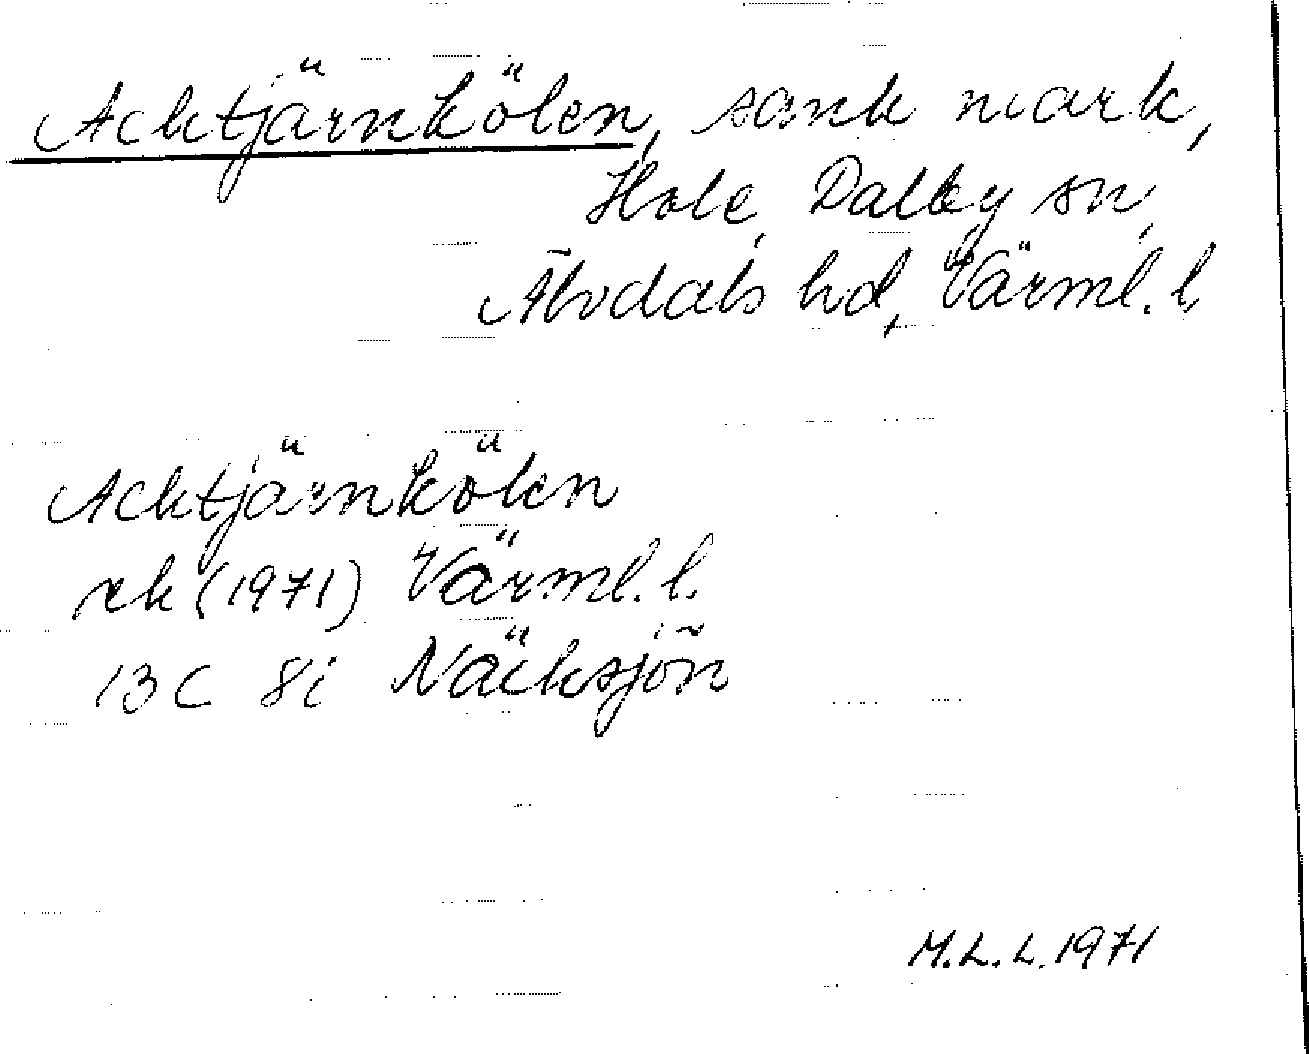 Acktjärnkölen, sank mark,
Hole, Dalby sn,
Älvdals hd, Värml. l
Acktjärnkölen
rek (1971) Värml. l.
13 C 8i Näcksjön
M.L.L. 1971